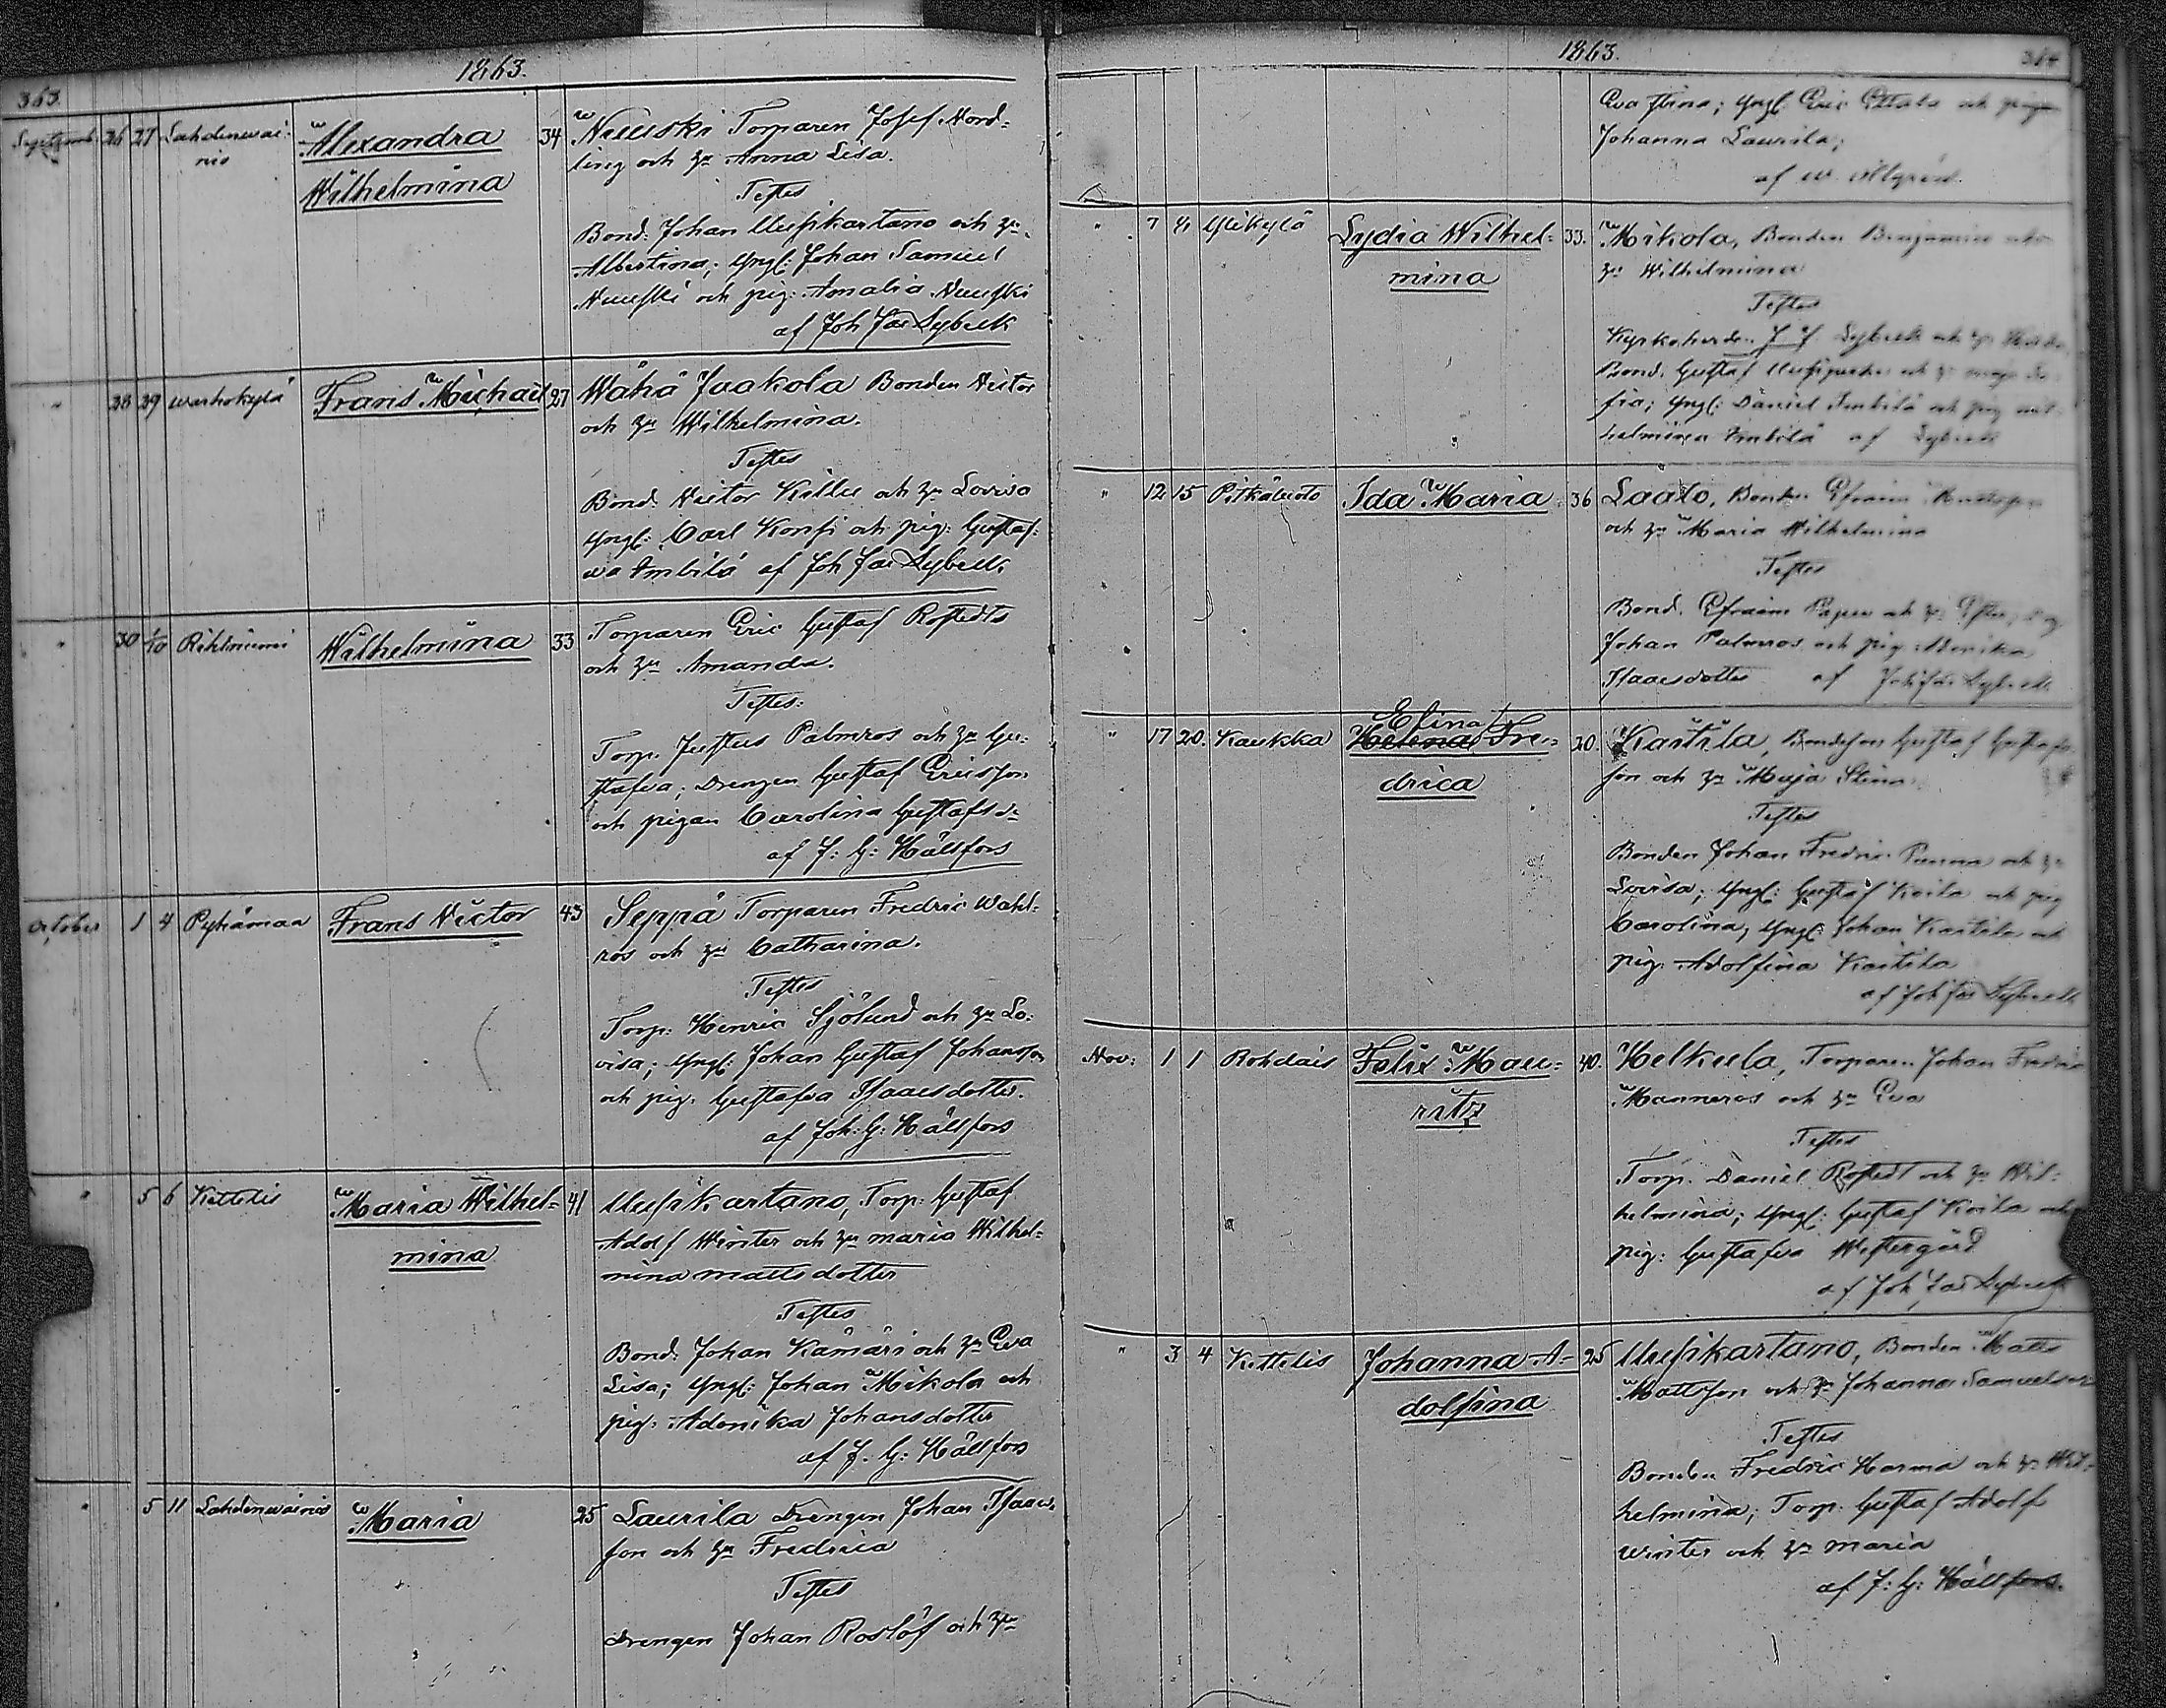 1863.
363.
Septemb. 26 27 Lahdenwai- Alexandra 34 Nuuski Torparen Josef Nord-
nis Wilhelmina ling och hu Anna Lisa.
Testes
Bond: Johan Uusikartano och hu
Albertina; Yngl: Johan Samuel
Nuuski och pig: Amalia Nuuski
af Joh Jac Lybeck
" 28 29 Warhokylä Frans Michael 27 Wähä Jaakola Bonden Victor
och hu Wilhelmina.
Testes
Bond. Victor Killu och hu Lovisa
Yngl: Carl Konsi och pig: Gustaf-
wa Ambilä af Joh Jac Lybeck
" 30 1/10 Rihtniemi Wilhelmina 33 Torparen Eric Gustaf Rostedts
och hu Amanda.
Testes:
Torp. Justus Palmros och hu Gu-
stafva; Drengen Gustaf Ericsson
och pigan Carolina Gustafsdr
af J: G: Hällfors
October 1 4 Pyhämaa Frans Victor 43 Seppä Torparen Fredric Wahl-
ros och hu Catharina.
Testes
Torp: Henric Sjölund och hu Lo-
visa; Yngl: Johan Gustaf Johansson
och pig. Gustafva Isaacsdotter.
af Joh: G: Hällfors
" 5 6 Kettelis Maria Wilhel- 41 Uusikartano, Torp: Gustaf
mina Adolf Winter och hu Maria Wilhel-
mina Mattsdotter
Testes
Bond: Johan Kämäri och hu Eva
Lisa; Yngl: Johan Mikola och
pig: Adonika Johansdotter
af J. G: Hällfors
" 5 11 Lahdenwainis Maria 25 Laurila Drengen Johan Isaacs-
son och hu Fredrica
Testes
Drengen Johan Roslöf och hu
1863.
364
Eva Stina; Yngl: Eric Ettala och pigan
Johanna Laurila;
af
" 7 Ylikylä Lydia Wilhel- 33. Mikola, Bonden Benjamin och
mina hu Wilhelmina
Testes
Kyrkoherden J J Lybeck och hu
Bond. Gustaf och hu Maja So-
fia; Yngl: Daniel Ambilä och pig Wil-
helmina Ambilä af Lybeck
" 12 15 Pitkäluoto Ida Maria 36 Laato, Bonden Efraim
och hu Maria Wilhelmina
Testes
Bond. Efraim och hu
Johan Palmros och pig: Adonika
Isaacsdotter af Joh Jac Lybeck
Elina
" 17 20. Kaukka Helena Fre- 20. Kaitila, Bondeson Gustaf Gustafs-
drica son och hu Maja Stina
Testes
Bonden Johan Fredric Punna och hu
Lovisa; Yngl: Gustaf Koila och pig
Carolina; Yngl: Johan Kaitila och
pig: Adolfina Kaitila
af Joh Jac Lybeck
Nov: 1 1 Rohdais Felix Mau- 40. Helkula, Torparen Johan Fredric
ritz Manneros och hu Eva
Testes
Torp. Daniel Rostedt och hu Wil-
helmina; Yngl: Gustaf Koila och
pig: Gustafva Westergård
af Joh Jac Lybeck
" 3 4 Kettelis Johanna A- 25 Uusikartano, Bonden Matts
dolfina Mattsson och hu Johanna Samuelsdr
Testes
Bonden Fredric Harma och hu Wil-
helmina; Torp: Gustaf Adolf
Winter och hu Maria
af J: G: Hällfors.